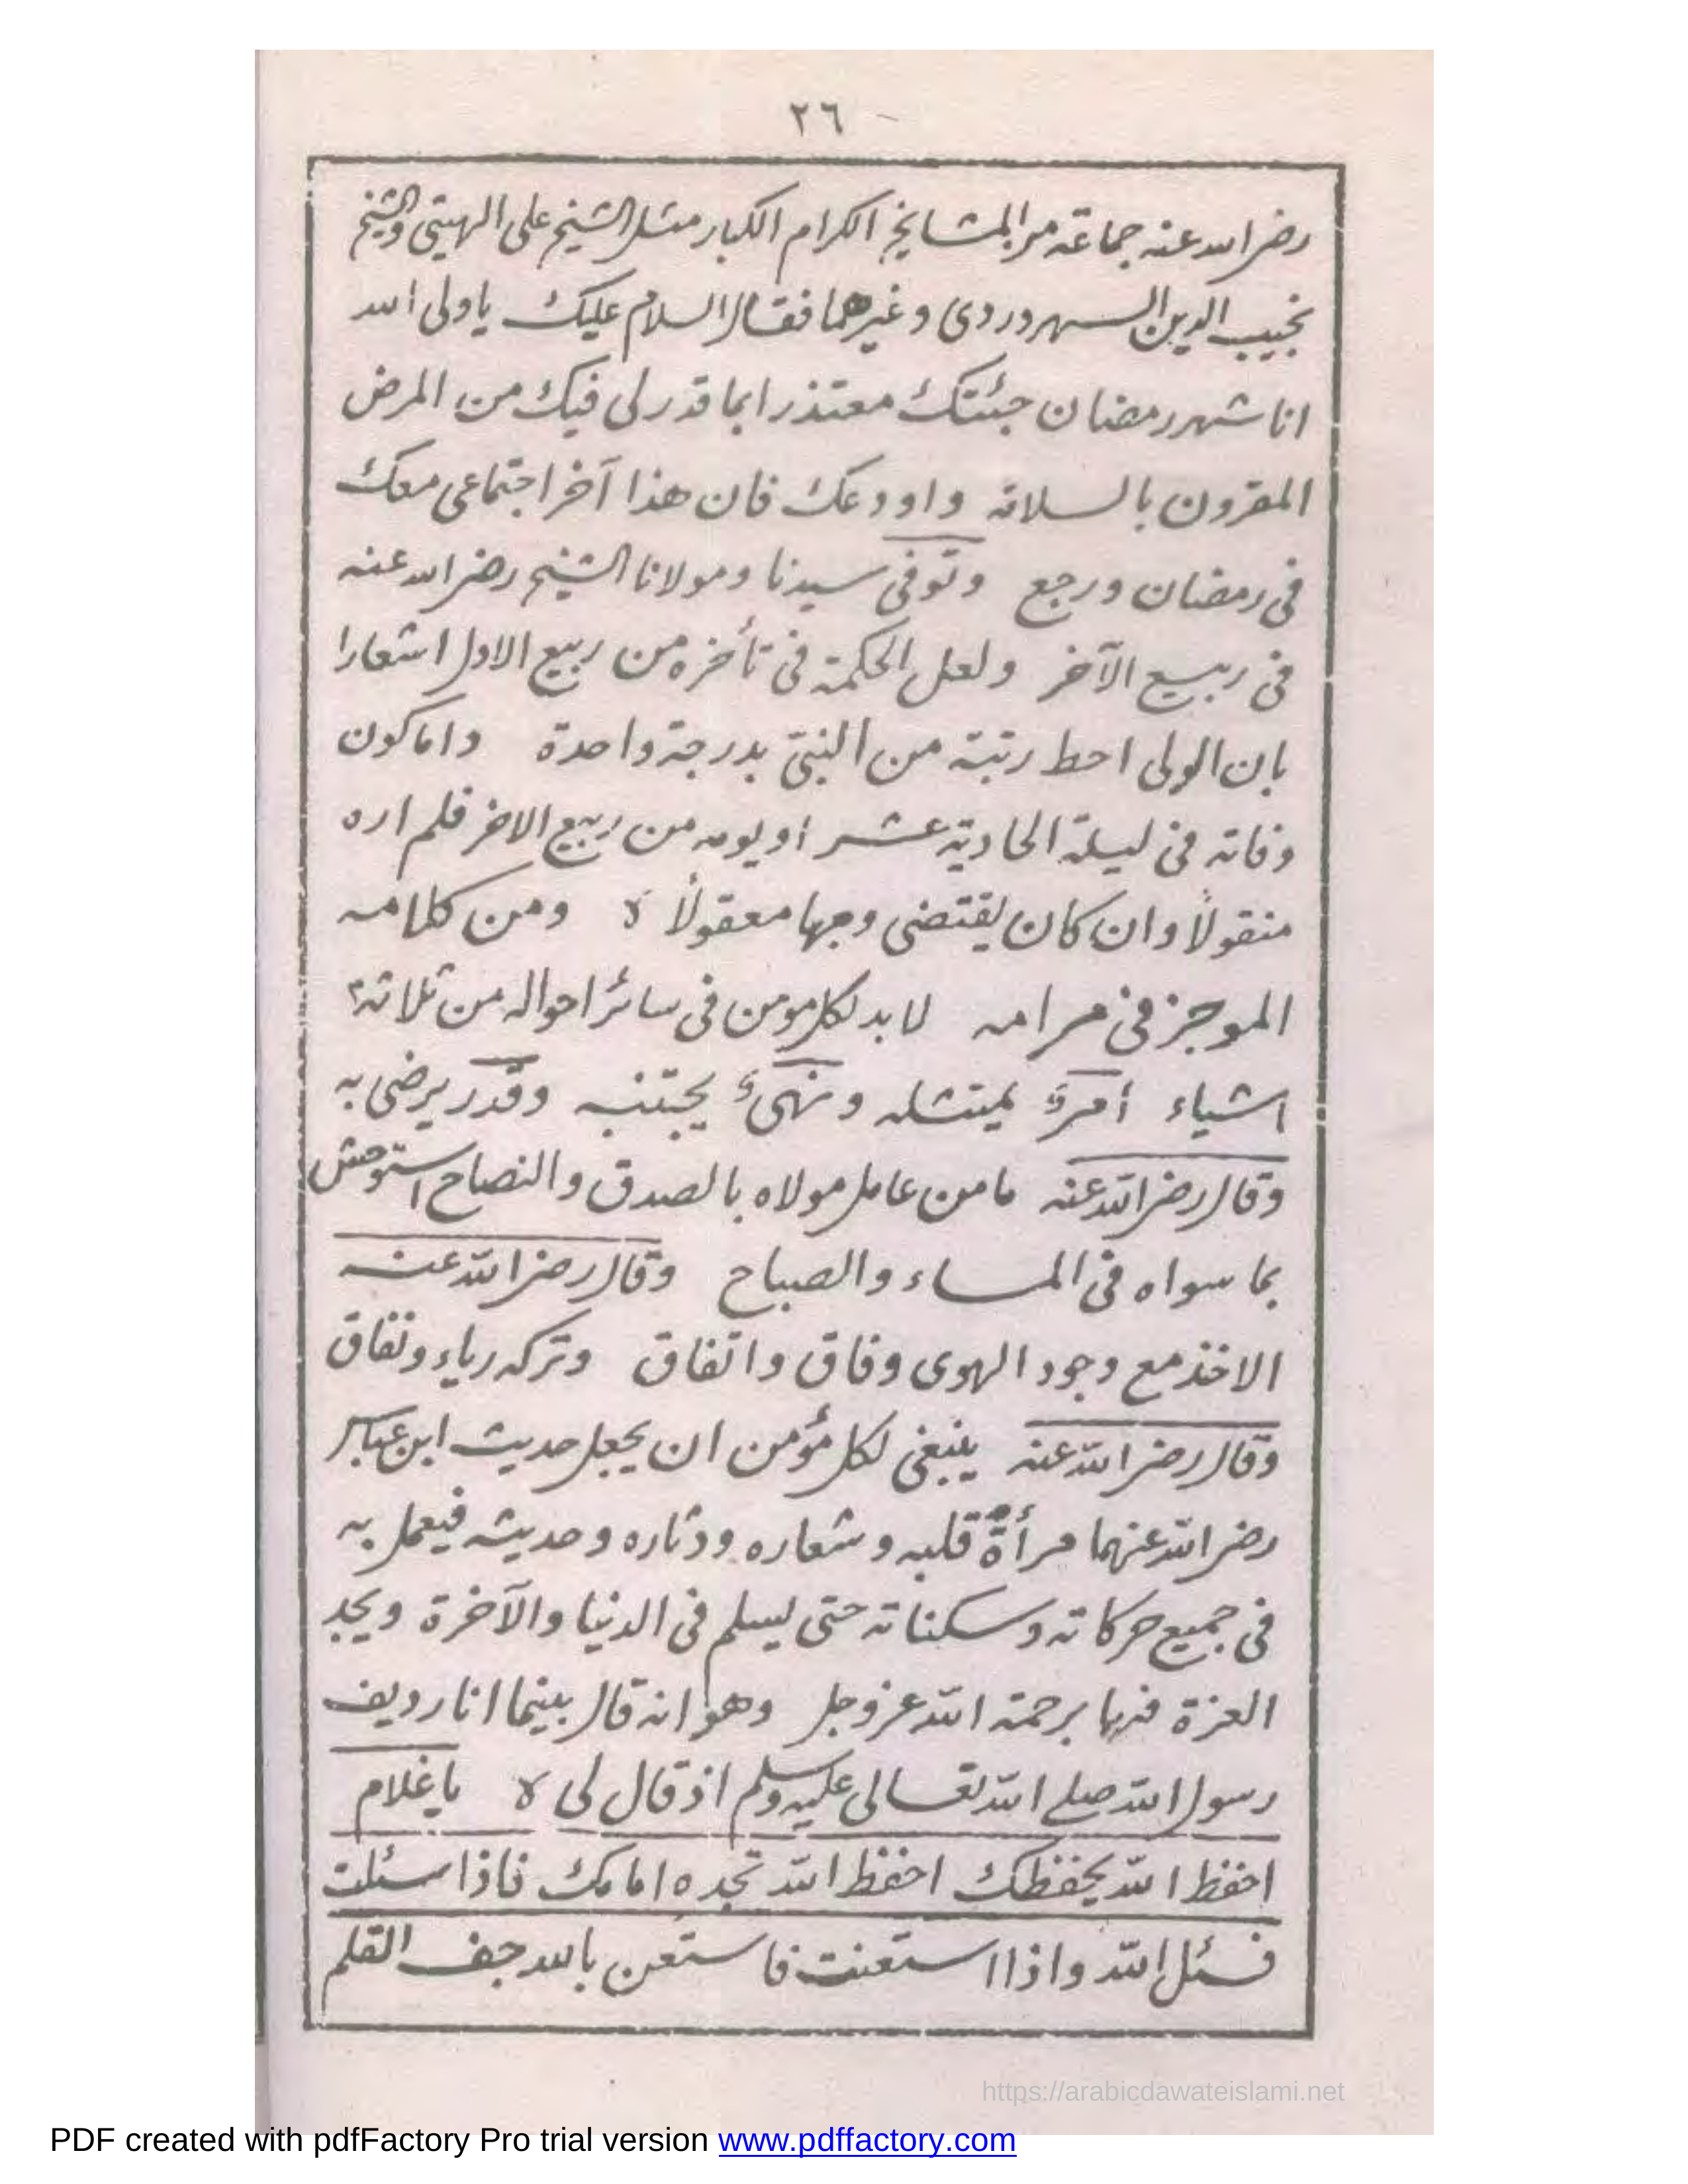 ٢٦
رضى الله عنه جماعة من المشايخ الكرام الكبار مثل الشيخ على الهيتى والشيخ
نجيب الدين السهروردى وغيرهما فقال السلام عليك ياولى الله
انا شهر رمضان جئتك معتذرا بما قدر لى فيك من المرض
المقرون بالسلامة واودعك فان هذا آخر اجتماعى معك
فى رمضان ورجع وتوفى سيدنا ومولانا الشيخ رضى الله عنه
فى ربيع الآخر ولعل الحكمة فى تأخره من ربيع الاول اشعارا
بان الولى احط رتبة من النبىّ بدرجة واحدة واما كون
وفاته فى ليلة الحادية عشر او يومه من ربيع الاخر فلم اره
منقولاً وان كان يقتضى وجها معقولاً ه ومن كلامه
الموجز فى مرامه لابد لكل مومن فى سائر احواله من ثلاثة
اشياء أمرٌ يمتثله ونهىٌ يجتنبه وقدر يرضى به
وقال رضى الله عنه مامن عامل مولاه بالصدق والنصاح استوحش
بما سواه فى المساء والصباح وقال رضى الله عنه
الاخذ مع وجود الهوى وفاق واتفاق وتركه رياء ونفاق
وقال رضى الله عنه ينبغى لكل مؤمن ان يجعل حديث ابن عباس
رضى الله عنهما مرأةٌ قلبه وشعاره ودثاره وحديثه فيعمل به
فى جميع حركاته وسكناته حتى يسلم فى الدنيا والآخرة ويجد
العزة فيها برحمة الله عز وجل وهو انه قال بينما انا رديف
رسول الله صلى الله تعالى عليه وسلم اذ قال لى ه ياغلام
احفظ الله يحفظك احفظ الله تجده امامك فاذا سئلت
فسئل الله واذا استعنت فاستعن بالله جف القلم
https://arabicdawateislami.net
PDF created with pdfFactory Pro trial version www.pdffactory.com